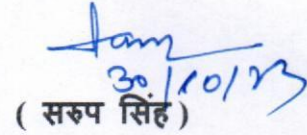 30/10/23
( सरुप सिंह )